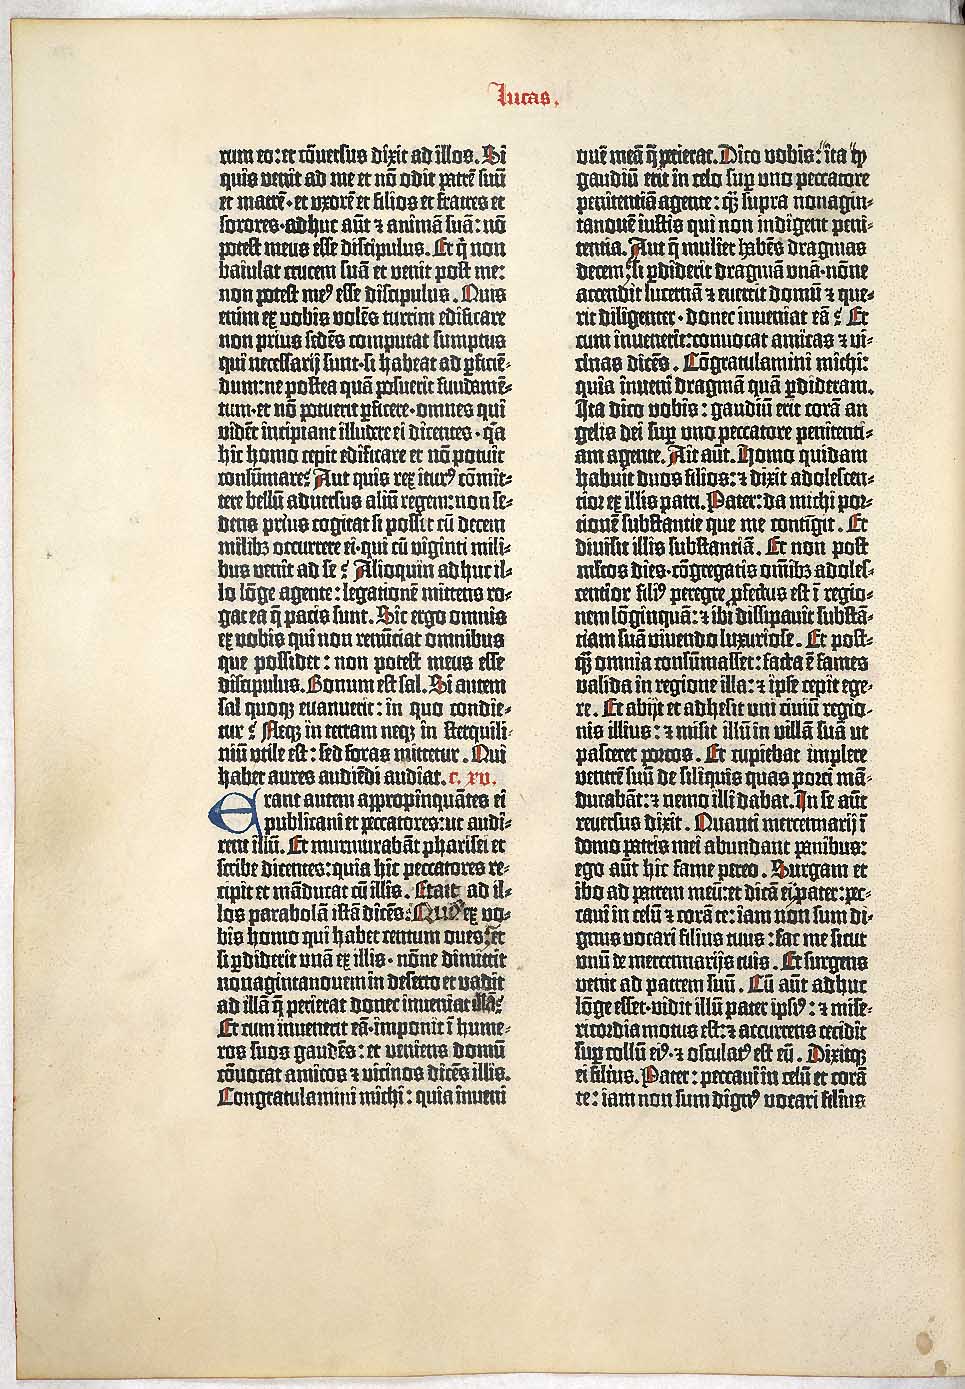 Lucas.
cum eo: et cōuersus dixit ad illos. Si
quis venit ad me et nō odit patrē suū
et matrē· et vxorē et filios et fratres et
sorores· adhuc aūt ⁊ animā suā: nō
potest meus esse discipulus. Et q̇ non
baiulat crucem suā et venit post me:
non potest meꝰ esse discipulus. Quis
enim ex vobis volēs turrim edificare
non prius sedēs computat sumptus
qui necessarij sunt· si habeat ad ꝑficiē-
dum: ne postea quā posuerit fundamē-
tum· et nō potuerit ꝑficere· omnes qui
vidēt incipiant illudere ei dicentes· q̄a
hic homo cepit edificare et nō potuit
consūmare? Aut quis rex iturꝰ cōmit-
tere bellū aduersus aliū regem: non se-
dens prius cogitat si possit cū decem
milibꝫ occurrere ei· qui cū viginti mili-
bus venit ad se? Alioquin adhuc il-
lo lōge agente: legationē mittens ro-
gat ea q̄ pacis sunt. Sic ergo omnis
ex vobis qui non renūciat omnibus
que possidet: non potest meus esse
discipulus. Bonum est sal. Si autem
sal quoqꝫ euanuerit: in quo condie-
tur? Neqꝫ in terram neqꝫ in sterquili-
niū vtile est: sed foras mittetur. Qui
habet aures audiēdi audiat. c. xv.
Erant autem appropinquātes ei
publicani et peccatores: ut audi-
rent illū. Et murmurabāt pharisei et
scribe dicentes: quia hic peccatores re-
cipit et māducat cū illis. Et ait ad il-
los parabolā istā dicēs. Quis ex vo-
bis homo qui habet centum oues: et
si ꝑdiderit vnā ex illis· nōne dimittit
nonagintanouem in deserto et vadit
ad illā q̄ perierat donec inueniat illā?
Et cum inuenerit eā· imponit ī hume-
ros suos gaudēs: et veniens domū
cōuocat amicos ⁊ vicinos dicēs illis.
Congratulamini michi: quia inueni
ouē meā q̄ perierat. Dico vobis: ita
gaudiū erit in celo sup vno peccatore
penitentiā agente: qꝫ supra nonagin-
tanouē iustis qui non indigent peni-
tentia. Aut q̄ mulier habēs dragmas
decem, si ꝑdiderit dragmā vnā· nōne
accendit lucernā ⁊ euertit domū ⁊ que-
rit diligenter· donec inueniat eā? Et
cum inuenerit: conuocat amicas ⁊ vi-
cinas dicēs. Cōgratulamini michi:
quia inueni dragmā quā ꝑdideram.
Ita dico vobis: gaudiū erit corā an
gelis dei sup vno peccatore penitenti-
am agente. Ait aūt. Homo quidam
habuit duos filios: ⁊ dixit adolescen-
tior ex illis patri. Pater: da michi por-
tionē substantie que me contigit. Et
diuisit illis substantiā. Et non post
mltos dies· cōgregatis omībꝫ adoles-
centior filiꝰ peregre ꝓfectus est ī regio-
nem lōginquā: ⁊ ibi dissipauit substā-
tiam suā viuendo luxuriose. Et post-
qꝫ omnia consūmasset: facta ē fames
valida in regione illa: ⁊ ipse cepit ege-
re. Et abijt et adhesit vni ciuiū regio-
nis illius: ⁊ misit illū in villā suā ut
pasceret porcos. Et cupiebat implere
ventrē suū de siliquis quas porci mā-
ducabāt: ⁊ nemo illi dabat. In se aūt
reuersus dixit. Quanti mercennarij ī
domo patris mei abundant panibus:
ego aūt hic fame pereo. Surgam et
ibo ad patrem meū: et dicā ei, pater: pec-
caui in celū ⁊ corā te: iam non sum di-
gnus vocari filius tuus: fac me sicut
vnū de mercennarijs tuis. Et surgens
venit ad patrem suū. Cū aūt adhuc
lōge esset· vidit illū pater ipsiꝰ: ⁊ mise-
ricordia motus est: ⁊ accurrens cecidit
sup collū eiꝰ· ⁊ osculatꝰ est eū. Dixitqꝫ
ei filius. Pater: peccaui in celū et corā
te: iam non sum dignꝰ vocari filius